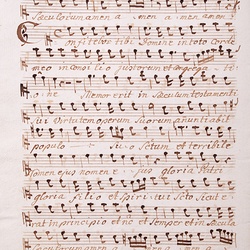 Saeculorum amen a men a men amen
Confitebor tibi Domine in toto Corde
meo in Consilio justorum et Congrega tio
o ne Memor erit in Saeculum testamenti
sui Virtutem operum Suorum anuntiabit
populo Suo Setum et terribile
nomen ejus nomen e jus gloria Patri
gloria filio et Spiri tui Scto Sicut e
rat in principio et nc et Semper et in Saecula
Saeculorum amen a men a men